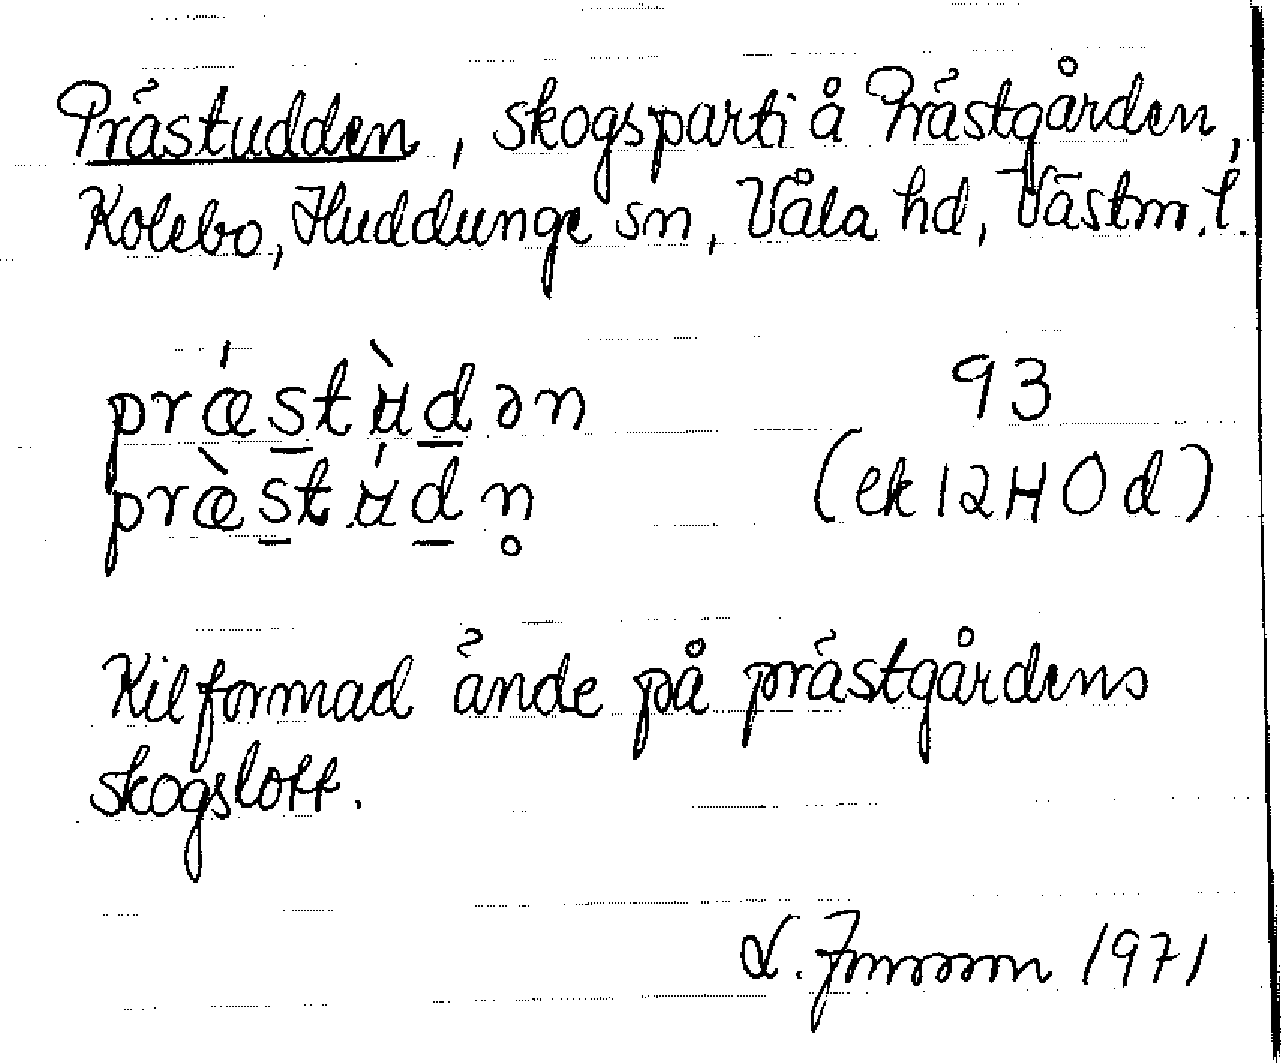 Prästudden, skogsparti å Prästgården,
Kolebo, Huddunge sn, Våla hd, Västm. l.
prǽstʉ̀dən 93
præ̀stʉ́dn̥ (ek 12H0d)
Kilformad ände på prästgårdens
skogslott.
L. 1971